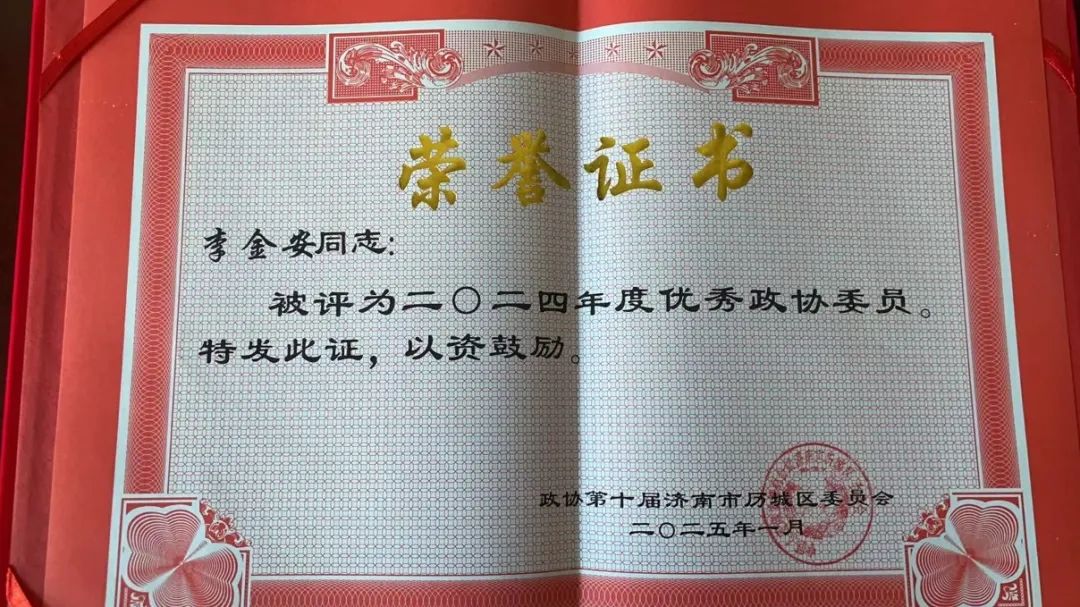 荣誉证书
李金安同志：
被评为二〇二四年度优秀政协委员。
特发此证，以资鼓励。
政协第十届济南市历城区委员会
二〇二五年一月